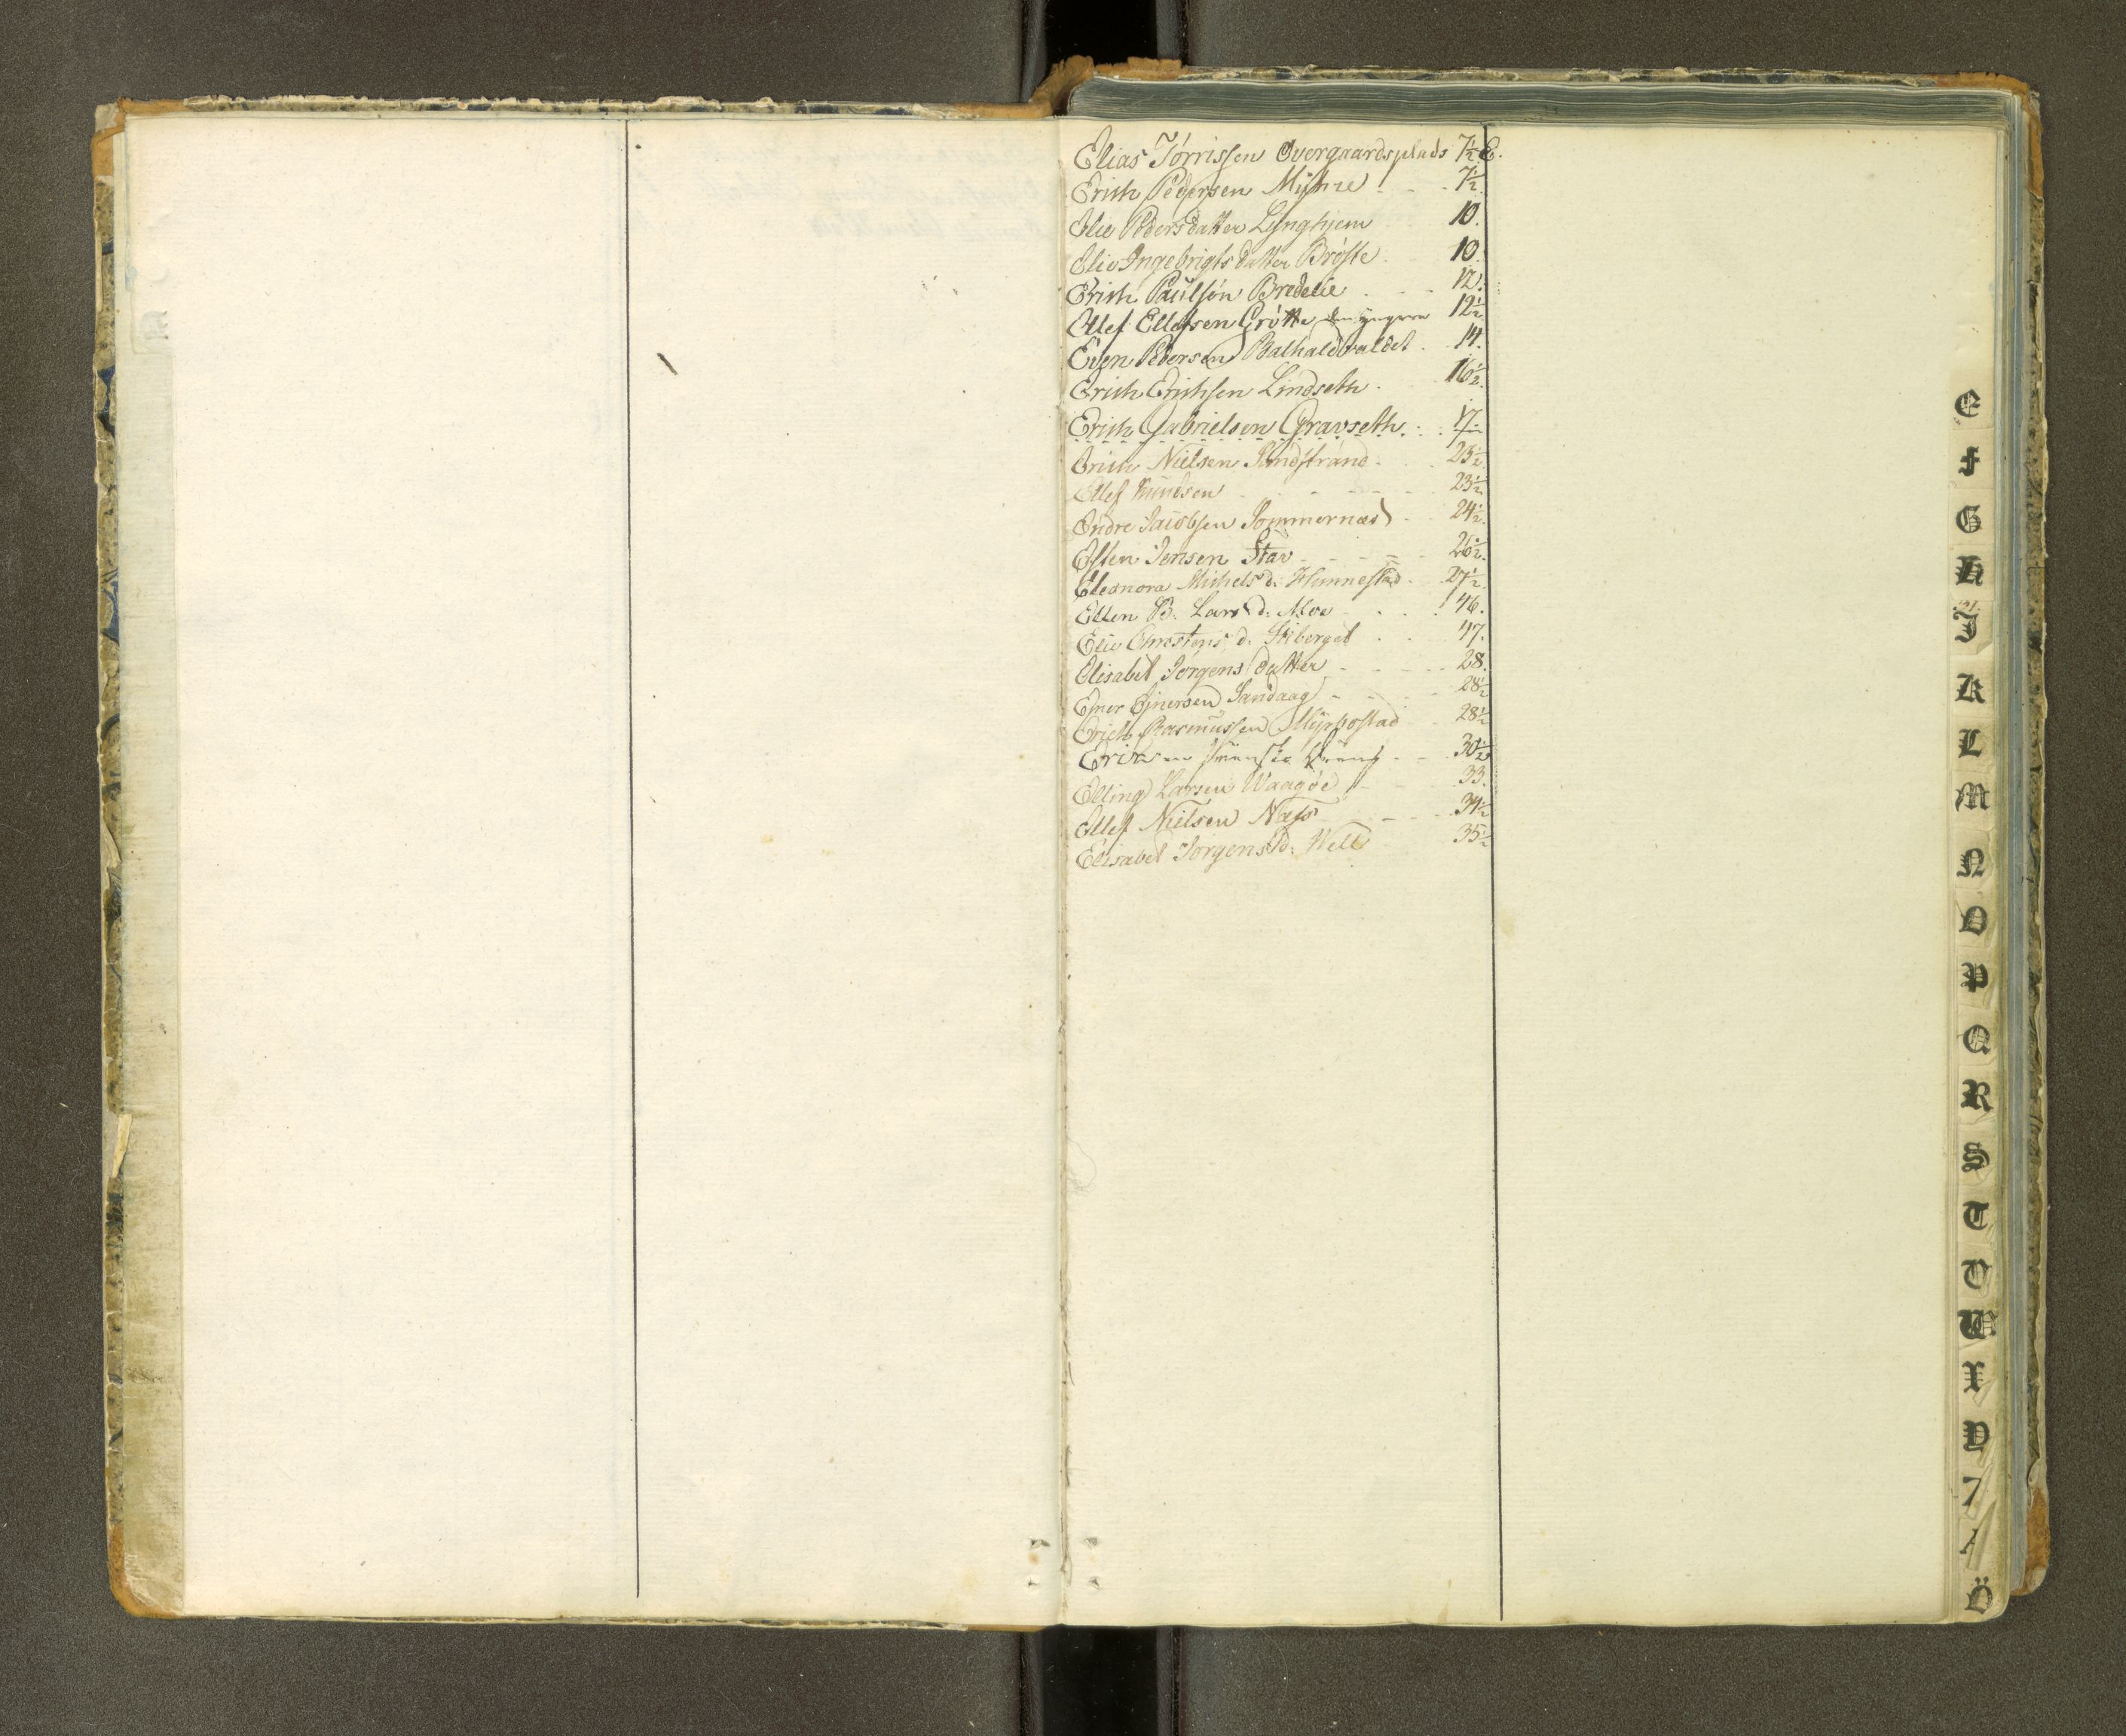 Elias Tørrissen Overgaardsplads 7½ E.
Erich Pedersen Myhre - - 7½.
Elie Pedersdatter Lynghjem 10.
Elie Ingebrigtsdatter Brøste 10.
Erich Paulsøn Bredelie - - 12.
Ellef Ellefsen Grøtte den yngere 12½
Even Pedersen 14.
Erich Erichsen Lindseth 16½.
Erich Gabrielsen Gravseth 17.
Erich Nielsen Sandstrand 23½
Ellef Knudsen - - - - 23½
Endre Jacobsen Sommernæs 24½.
Esten Jensen Stav - - - - 26½.
Eleonora Michelsd: Hunnestad 27½
Ellen B. Larsd: Moe 46.
Elie Christens d: 47.
Elisabet Jørgensdatter - - - - 28.
Ejner Ejnersen Sandaag - - - 28½
Erich Rasmussen Myrbostad 28½
Erik en Svensk Dreng - - 30½
Elling Larsen Waagøe 33.
Ellef Nielsen Næss - - - 34½
Elisabet Jørgensd: 35½
E
F
G
H
I
K
L
M
N
O
P
Q
R
S
T
U
W
X
Y
Ö